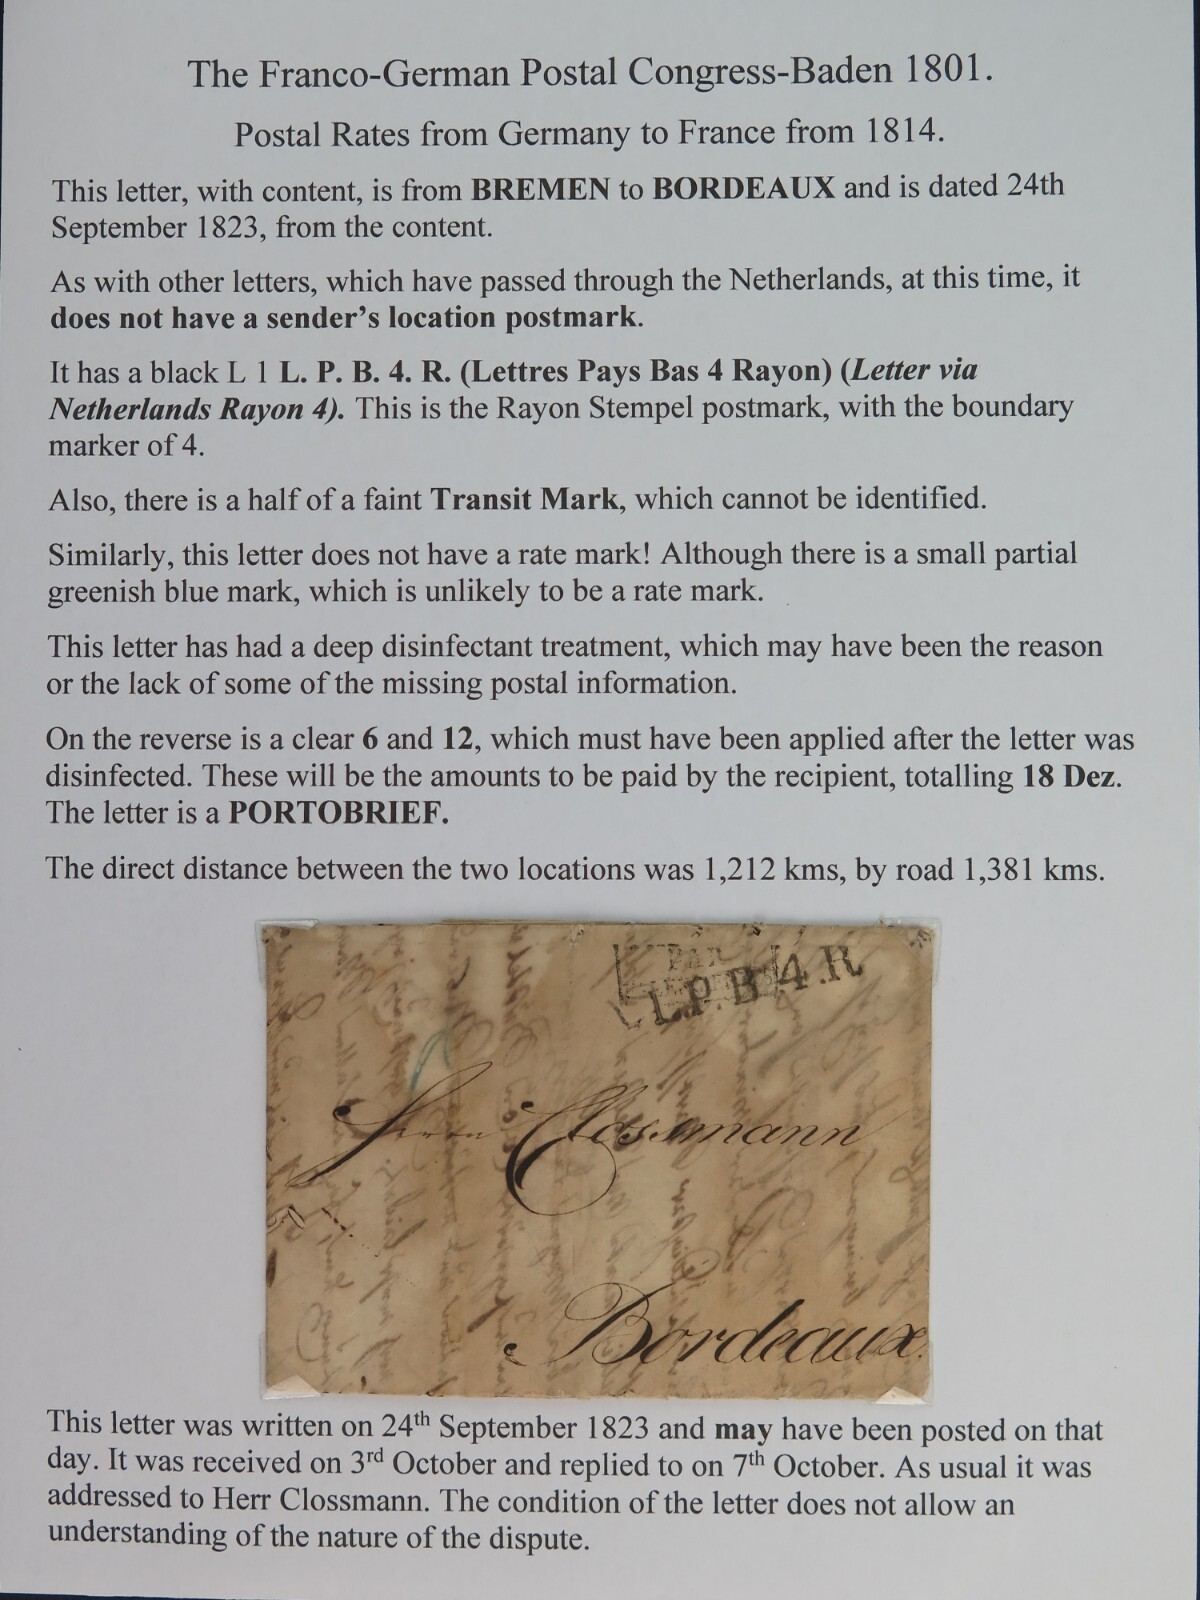 The Franco-German Postal Congress-Baden 1801.
Postal Rates from Germany to France from 1814.
This letter, with content, is from BREMEN to BORDEAUX and is dated 24th
September 1823, from the content.
As with other letters, which have passed through the Netherlands, at this time, it
does not have a sender’s location postmark.
It has a black L 1 L. P. B. 4. R. (Lettres Pays Bas 4 Rayon) (Letter via
Netherlands Rayon 4). This is the Rayon Stempel postmark, with the boundary
marker of 4.
Also, there is a half of a faint Transit Mark, which cannot be identified.
Similarly, this letter does not have a rate mark! Although there is a small partial
greenish blue mark, which is unlikely to be a rate mark.
This letter has had a deep disinfectant treatment, which may have been the reason
or the lack of some of the missing postal information.
On the reverse is a clear 6 and 12, which must have been applied after the letter was
disinfected. These will be the amounts to be paid by the recipient, totalling 18 Dez.
The letter is a PORTOBRIEF.
The direct distance between the two locations was 1,212 kms, by road 1,381 kms.
PAR
L.P.B.4.R
Herrn Clossmann
Bordeaux.
This letter was written on 24th September 1823 and may have been posted on that
day. It was received on 3rd October and replied to on 7th October. As usual it was
addressed to Herr Clossmann. The condition of the letter does not allow an
understanding of the nature of the dispute.